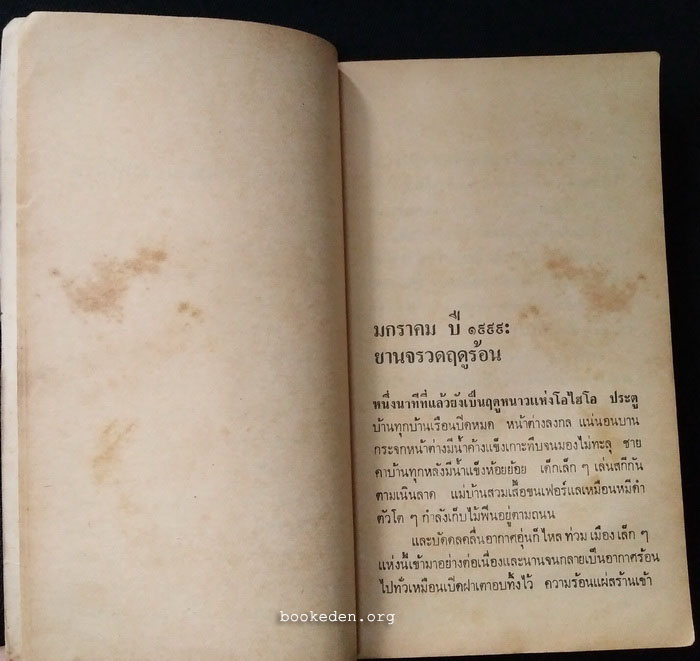 มกราคม ปี ๑๙๙๙:
ยานจรวดฤดูร้อน
หนึ่งนาทีที่แล้วยังเป็นฤดูหนาวแห่งโอไฮโอ ประตู
บ้านทุกบ้านเรือนปิดหมด หน้าต่างลงกล แน่นอนบาน
กระจกหน้าต่างมีน้ำค้างแข็งเกาะทึบจนมองไม่ทะลุ ชาย
คาบ้านทุกหลังมีน้ำแข็งห้อยย้อย เด็กเล็ก ๆ เล่นสกีกัน
ตามเนินลาด แม่บ้านสวมเสื้อขนเฟอร์แลเหมือนหมีดำ
ตัวโต ๆ กำลังเก็บไม้ฟืนอยู่ตามถนน
และบัดดลคลื่นอากาศอุ่นก็ไหล ท่วม เมือง เล็ก ๆ
แห่งนี้เข้ามาอย่างต่อเนื่องและนานจนกลายเป็นอากาศร้อน
ไปทั่วเหมือนเปิดฝาเตาอบทิ้งไว้ ความร้อนแผ่สร้านเข้า
bookeden.org